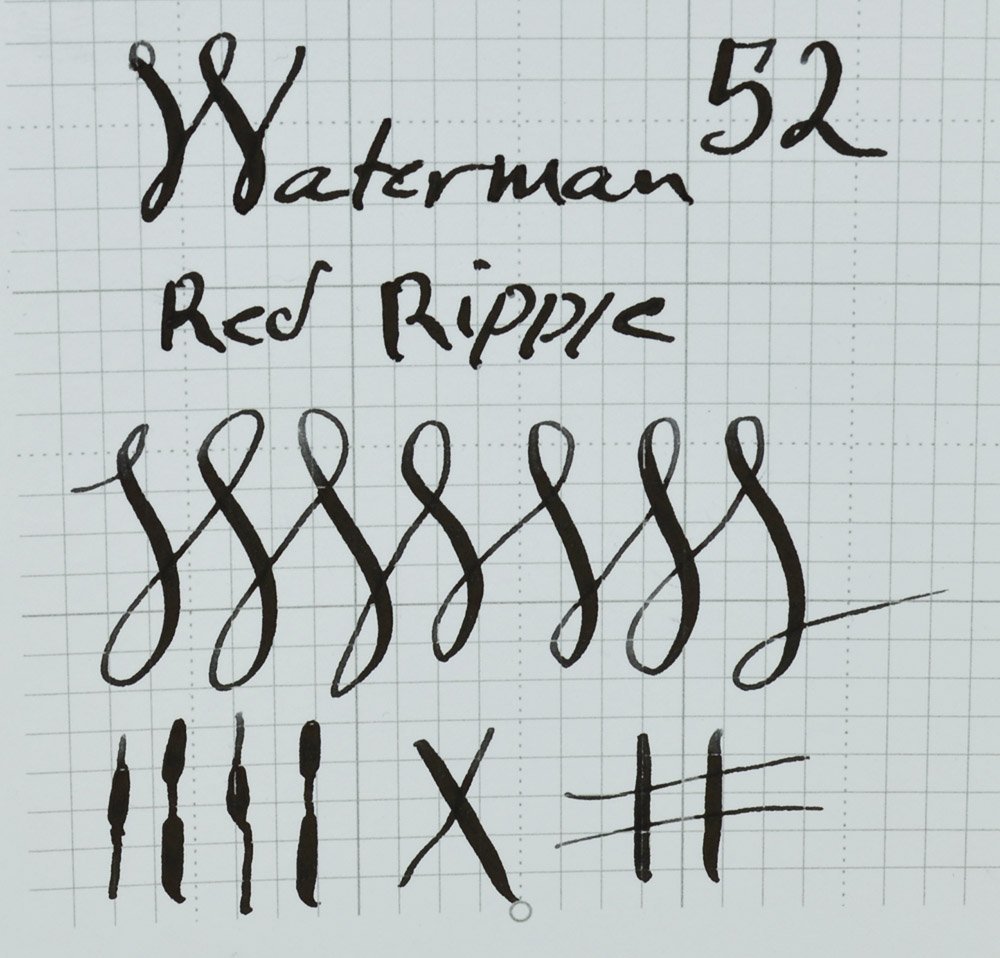 Waterman 52
Red Ripple
X #